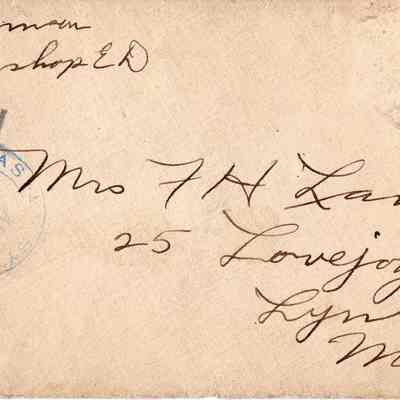 rman
shop E D
AS
Mrs F H Lan
25 Lovejoy
Lyn
M